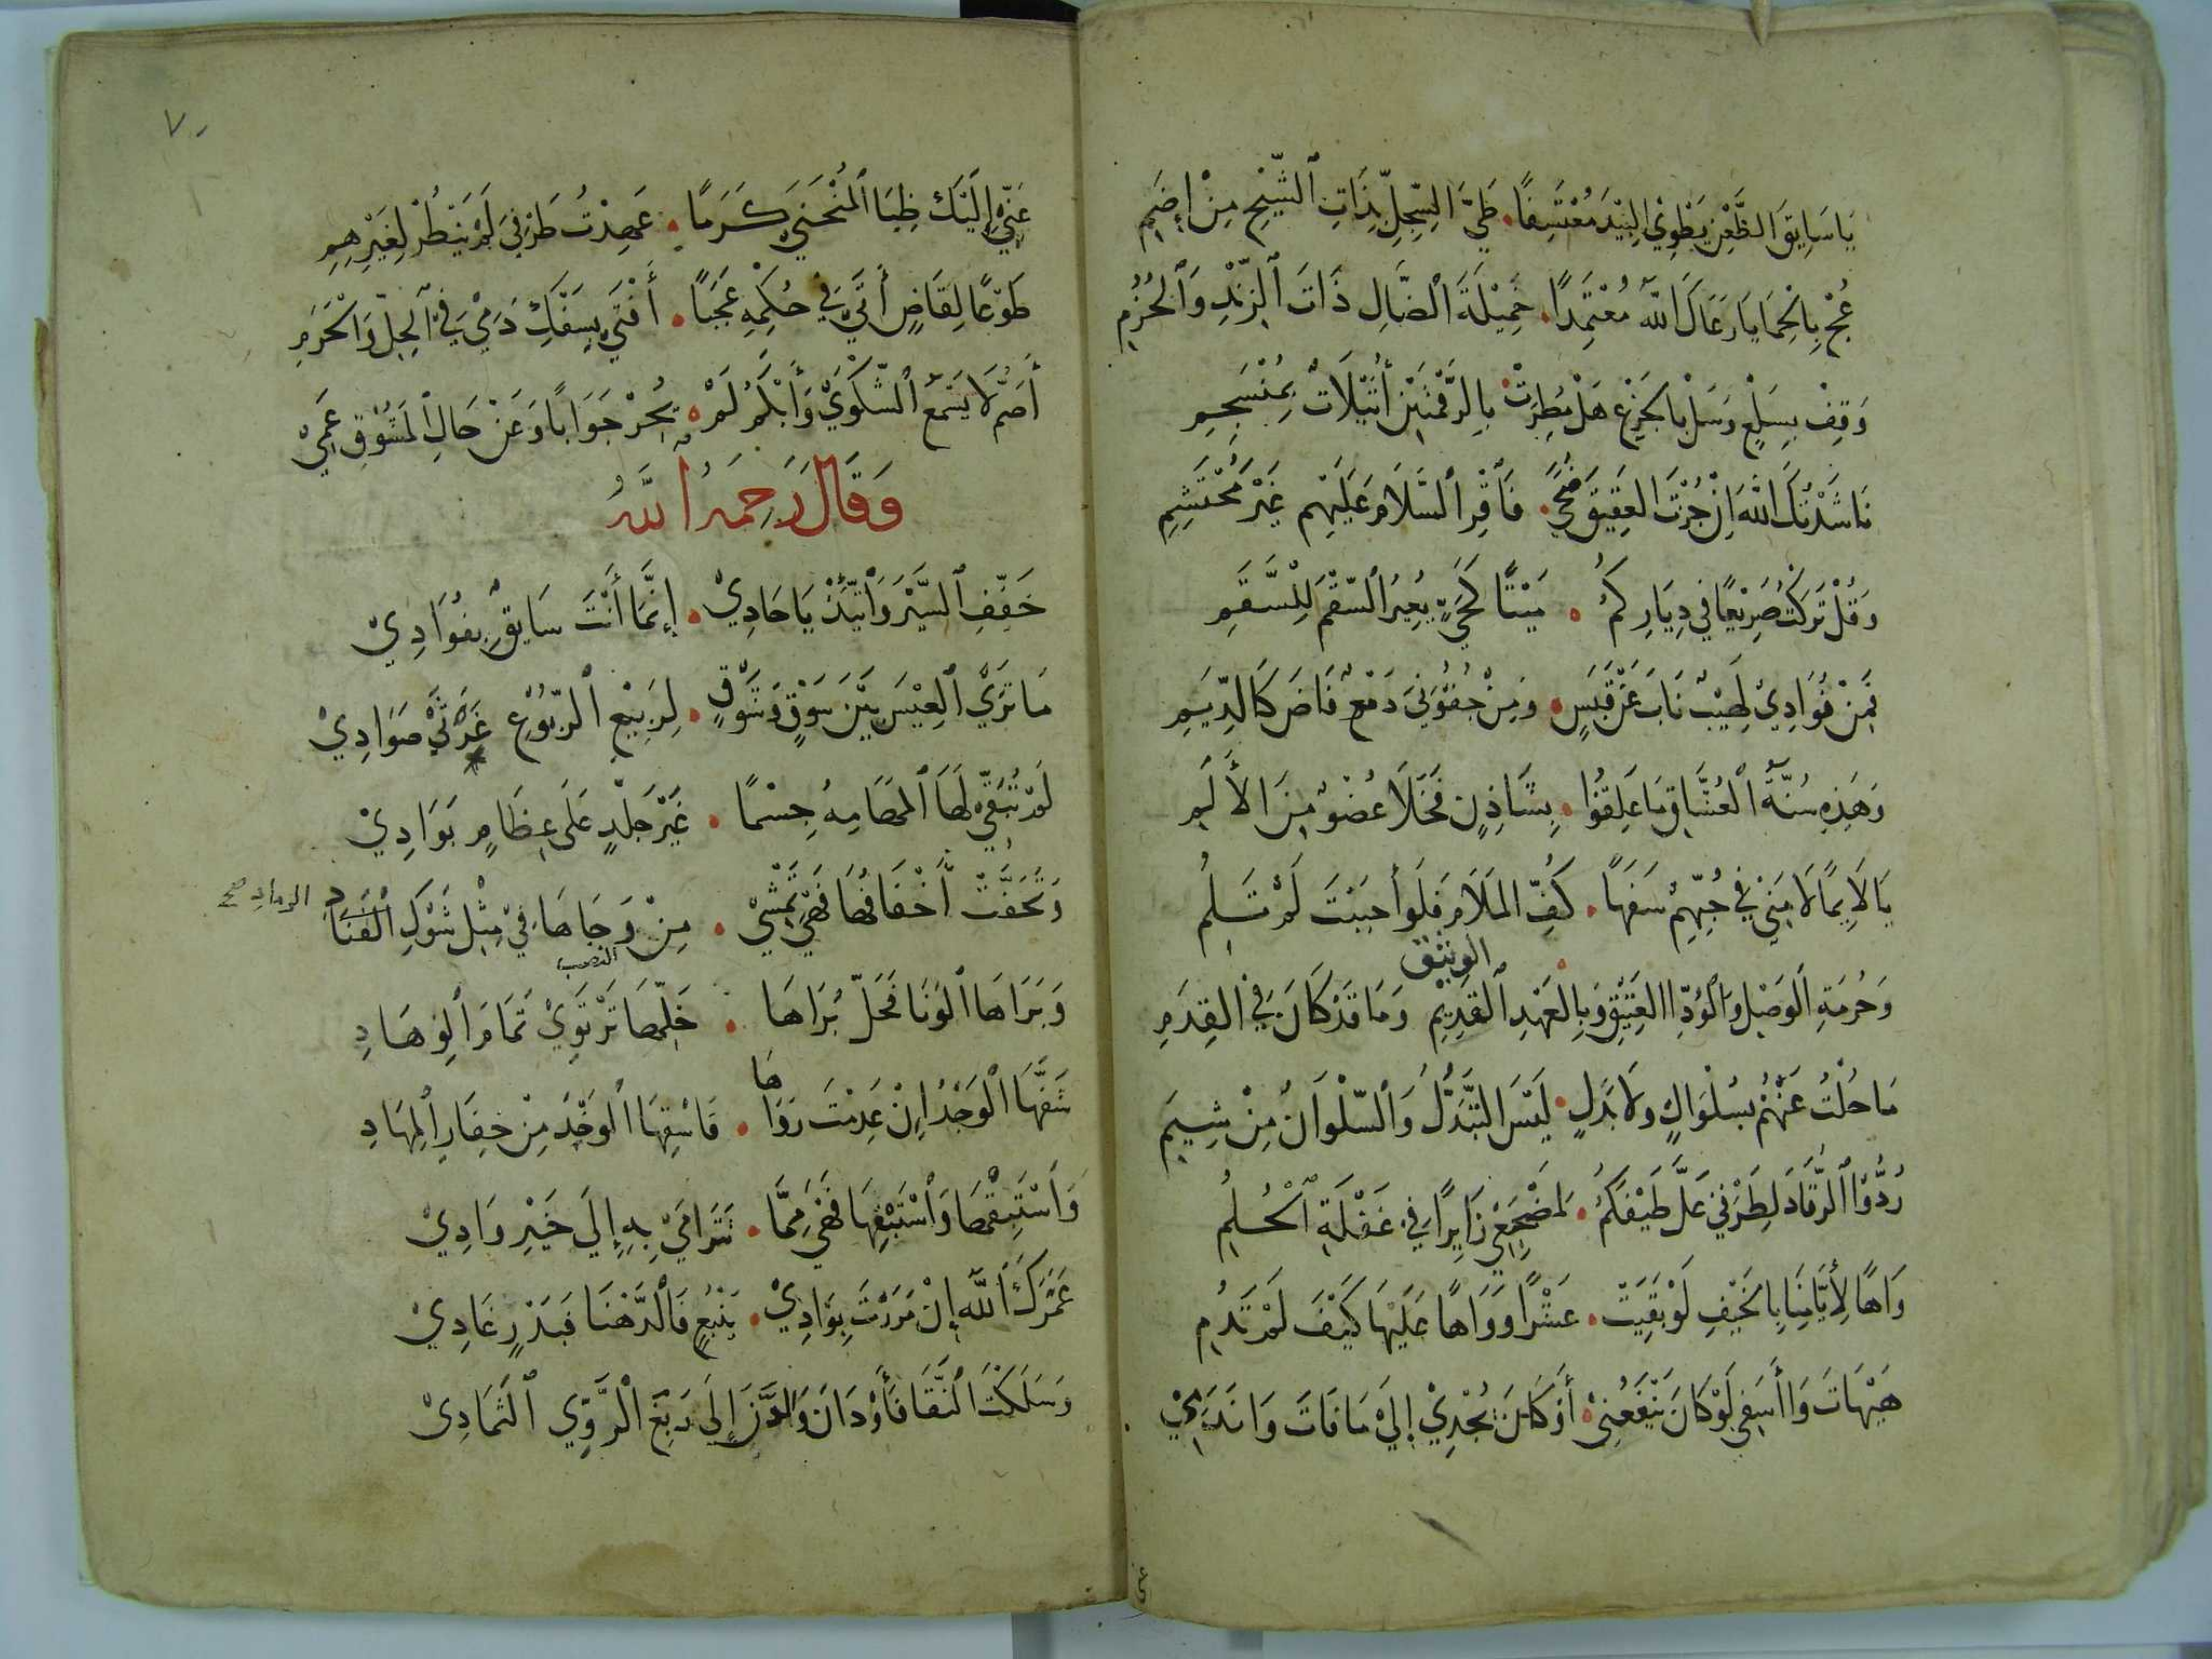 يَا سَايِقَ الظَّعْنِ يَطْوِي البِيْدَ مُعْتَسِفًا . طَيَّ السِّجِلِّ بِذَاتِ الشِّيْحِ مِنْ إِضَمِ
عُجْ بِالحِمَا يَا رَعَاكَ اللَّهُ مُعْتَمِدًا . خَمِيْلَةَ الضَّالِ ذَاتَ الرَّنْدِ وَالخُزُمِ
وَقِفْ بِسَلْعٍ وَسَلْ بِالجَزْعِ هَلْ مُطِرَتْ . بِالرَّقْمَتَيْنِ أُثَيْلَاتٌ بِمُنْسَجِمِ
نَاشَدْتُكَ اللَّهَ إِنْ جُزْتَ العَقِيْقَ ضُحًى . فَاقْرِ السَّلَامَ عَلَيْهِم غَيْرَ مُحْتَشِمِ
وَقُلْ تَرَكْتُ صَرِيْعًا فِي دِيَارِكُمُ . مَيْتًا كَحَيٍّ يُعِيْرُ السُّقْمَ لِلسَّقَمِ
فَمِنْ فُؤَادِيْ لَهِيْبٌ نَابَ عَنْ قَبَسٍ . وَمِنْ جُفُوْنِيَ دَمْعٌ فَاضَ كَالدِّيَمِ
وَهَذِهِ سُنَّةُ العُشَّاقِ مَا عَلِقُوا . بِشَاذِنٍ فَخَلَا عُضْوٌ مِنَ الأَلَمِ
يَا لَايِمًا لَامَنِي فِي حُبِّهِمْ سَفَهًا . كُفَّ المَلَامَ فَلَوْ أَحْبَبْتَ لَمْ تَلُمِ
وَحُرْمَةِ الوَصْلِ وَالوُدِّ العَتِيْقِ وَبِالعَهْدِ القَدِيْمِ وَمَا قَدْ كَانَ فِي القِدَمِ
الوثيق
مَا حُلْتُ عَنْهُمْ بِسُلْوَانٍ وَلَا بَدَلٍ . لَيْسَ التَّبَدُّلُ وَالسُّلْوَانُ مِنْ شِيَمِ
رُدُّوا الرُّقَادَ لِطَرْفِي عَلَّ طَيْفَكُمُ . لِمَضْجَعِي زَايِرًا فِي غَفْلَةِ الحُلُمِ
وَاهًا لِأَيَّامِنَا بِالخَيْفِ لَوْ بَقِيَتْ . عَشْرًا وَوَاهًا عَلَيْهَا كَيْفَ لَمْ تَدُمِ
هَيْهَاتَ وَا أَسَفِي لَوْ كَانَ يَنْفَعُنِيْ . أَوْ كَانَ يُجْدِيْ إِلَيْ مَا فَاتَ وَا نَدَمِيْ
٧٠
عَنِّي إِلَيْكَ ظِبَا المُنْحَنَى كَرَمًا . عَهِدْتُ طَرْفِيَ لَمْ يَنْظُرْ لِغَيْرِهِمِ
طَوْعًا لِقَاضٍ أَتَى فِي حُكْمِهِ عَجَبًا . أَفْتَى بِسَفْكِ دَمِيْ فِي الحِلِّ وَالحَرَمِ
أَصَمُّ لَا يَسْمَعُ الشَّكْوَى وَأَبْكَمُ لَمْ . يُحِرْ جَوَابًا وَعَنْ حَالِ المَشُوْقِ عَمِيْ
وَقَالَ رَحِمَهُ اللَّهُ
خَفِّفِ السَّيْرَ وَاتَّئِدْ يَا حَادِيْ . إِنَّمَا أَنْتَ سَايِقٌ بِفُوَادِيْ
مَا تَرَى العِيْسَ بَيْنَ سَوْقٍ وَشَوْقٍ . لِرَبِيْعِ الرُّبُوْعِ غَرْثَى صَوَادِيْ
لَمْ تُبَقِّي لَهَا المَهَامِهُ جِسْمًا . غَيْرَ جِلْدٍ عَلَى عِظَامٍ بَوَادِيْ
وَتَحَفَّتْ أَخْفَافُهَا فَهْيَ تَمْشِيْ . مِنْ وَجَاهَا فِيْ مِثْلِ شَوْكِ القَتَادِ الرماد صح
وَبَرَاهَا الوَنَا فَحَلَّ بُرَاهَا . خَلِّهَا تَرْتَوِيْ ثَمَامَ الوِهَادِ
النصب
شَفَّهَا الوَجْدُ إِنْ عَدِمْتَ رَوَاهَا . فَاسْقِهَا الوَخْدَ مِنْ جِفَارِ المِهَادِ
وَاسْتَبِقْهَا وَاسْتَبْقِهَا فَهْيَ مِمَّا . تَتَرَامَى بِهِ إِلَى خَيْرِ وَادِيْ
عَمْرَكَ اللَّهَ إِنْ مَرَرْتَ بِوَادِيْ . يَنْبُعٍ فَالدَّهْنَا فَبَدْرٍ غَادِيْ
وَسَلَكْتَ النَّقَا فَأَوْدَانَ وَدَّانَ إِلَى رَبِغَ الرَّوِي الثَّمَادِيْ